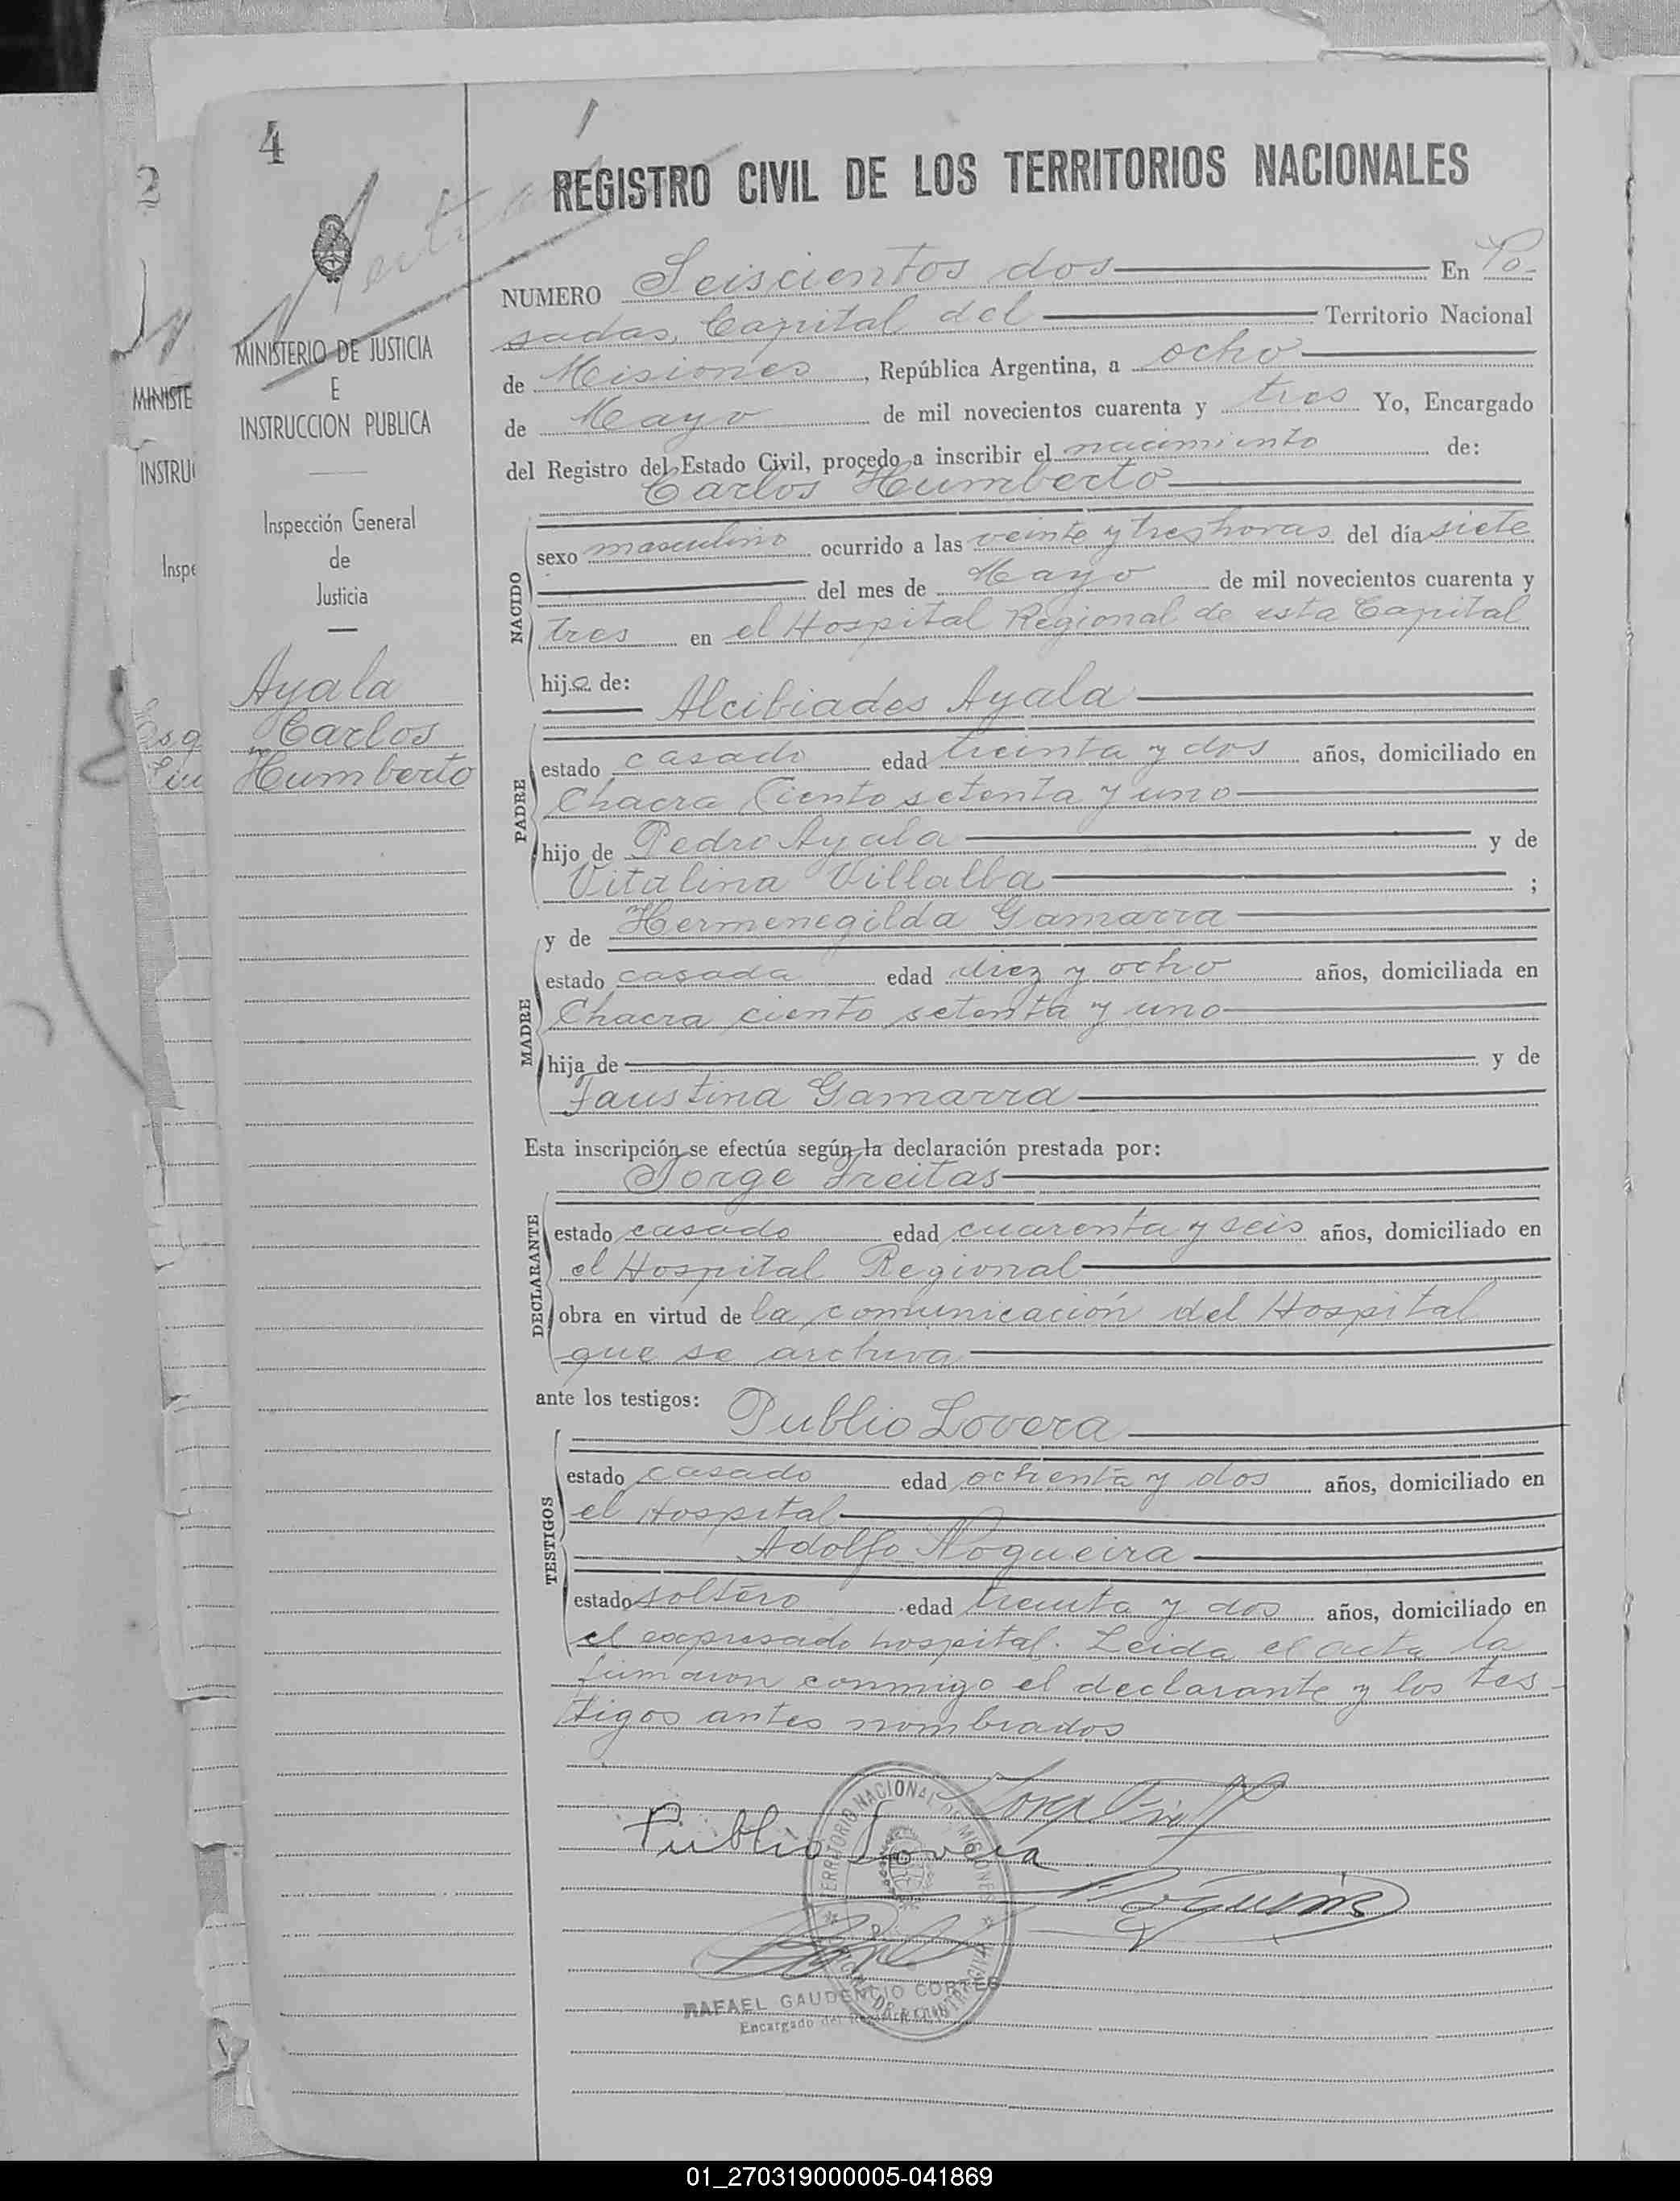 4
2
REGISTRO CIVIL DE LOS TERRITORIOS NACIONALES
NUMERO Seiscientos dos En Po-
sadas, Capital del Territorio Nacional
de Misiones, República Argentina, a ocho
de Mayo de mil novecientos cuarenta y tres Yo, Encargado
del Registro del Estado Civil, procedo a inscribir el nacimiento de:
Carlos Humberto
NACIDO
sexo masculino ocurrido a las veinte y tres horas del día siete
del mes de Mayo de mil novecientos cuarenta y
tres en el Hospital Regional de esta Capital
hijo de:
Alcibiades Ayala
PADRE
estado casado edad treinta y dos años, domiciliado en
Chacra Ciento setenta y uno
hijo de Pedro Ayala y de
Vitalina Villalba ;
MADRE
y de Hermenegilda Gamarra
estado casada edad diez y ocho años, domiciliada en
Chacra ciento setenta y uno
hija de y de
Faustina Gamarra
Esta inscripción se efectúa según la declaración prestada por:
Jorge Freitas
DECLARANTE
estado casado edad cuarenta y seis años, domiciliado en
el Hospital Regional
obra en virtud de la comunicación del Hospital
que se archiva
ante los testigos: Publio Lovera
TESTIGOS
estado casado edad ochenta y dos años, domiciliado en
el Hospital
Adolfo Nogueira
estado soltero edad treinta y dos años, domiciliado en
el expresado hospital. Leida el acta la
firmaron conmigo el declarante y los tes-
tigos antes nombrados
Publio Lovera
TERRITORIO NACIONAL DE MISIONES
RAFAEL GAUDENCIO CORTES
Encargado del
MINISTERIO DE JUSTICIA
E
INSTRUCCION PUBLICA
Inspección General
de
Justicia
Ayala
Carlos
Humberto
MINISTE
INSTRU
Inspe
01_270319000005-041869